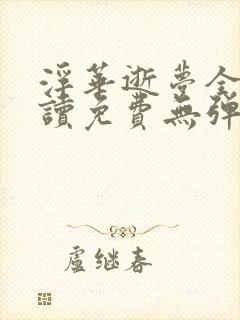 淫華逝夢全
讀免費無彈
盧继春